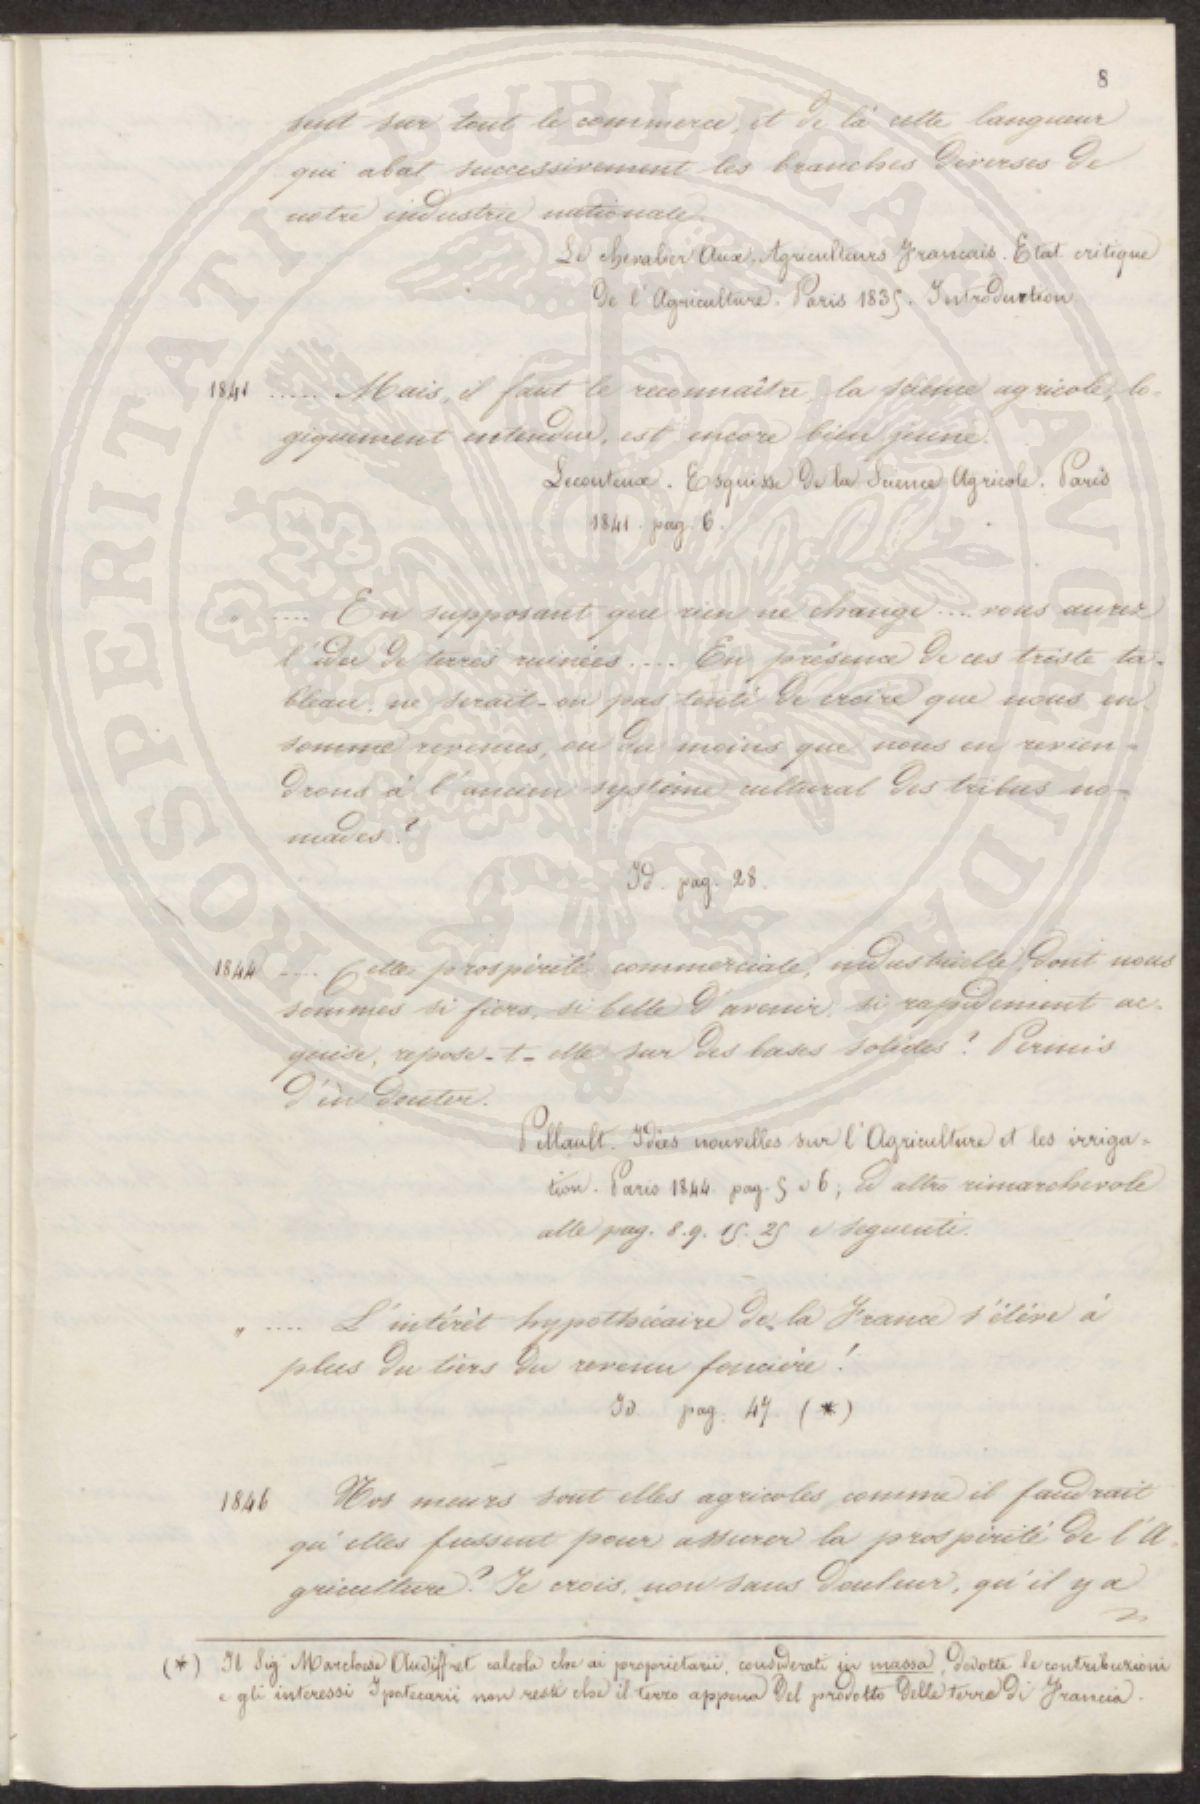 8
sent sur tout le commerce, et de là cette langueur
qui abat successivement les branches diverses de
notre industrie nationale.
Le chevalier Aux Agriculteurs Francais. Etat critique
de l'Agriculture. Paris 1835. Introduction
1841 ..... Mais, il faut le reconnaître, la science agricole, lo-
giquement entendue, est encore bien jeune.
Lecouteux. Esquisse de la Science Agricole. Paris
1841. pag. 6.
" .... En supposant que rien ne change .... vous aurez
l'idée de terres ruinées .... En présence de ces triste ta-
bleau, ne serait-on pas tenté de croire que nous en
somme revenus, ou du moins que nous en revien-
drons à l'ancien système cultural des tribus no-
mades?
Id. pag. 28.
1844 .... Cette prospérité commerciale, industrielle, dont nous
sommes si fiers, si belle d'avenir, si rapidement ac-
quise, repose-t-elle sur des bases solides? Permis
d'en douter.
Pellault. Idées nouvelles sur l'Agriculture et les irriga-
tion. Paris 1844. pag. 5 e 6; ed altro rimarchevole
alle pag. 8. 9. 15. 25 e seguenti.
" .... L'intérêt hypothécaire de la France s'élève à
plus du tiers du revenu foncière!
Id. pag. 47. (*)
1846 Nos mœurs sont elles agricoles comme il faudrait
qu'elles fussent pour assurer la prospérité de l'A-
griculture? Je crois, non sans douleur, qu'il y a
(*) Il Sig Marchese Audiffret calcola che ai proprietarii, considerati in massa, dedotte le contribuzioni
e gli interessi Ipotecarii non resti che il terzo appena del prodotto delle terre di Francia.
PROSPERITATI PVBLICAE AVGENDAE